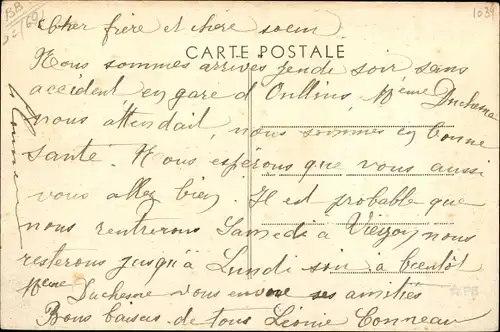 Cher frère et chère soeur
CARTE POSTALE
Nous sommes arrivés jeudi soir sans
accident en gare d'Oullins, Mème Duchesne
nous attendait, nous sommes en bonne
santé. Nous espérons que vous aussi
vous allez bien. Il est probable que
nous rentrerons Samedi à Vierzon nous
resterons jusqu'à Lundi soir à bientôt
Mème Duchesne vous envoie ses amitiés
Bons baisers de tous Léonie Conneau